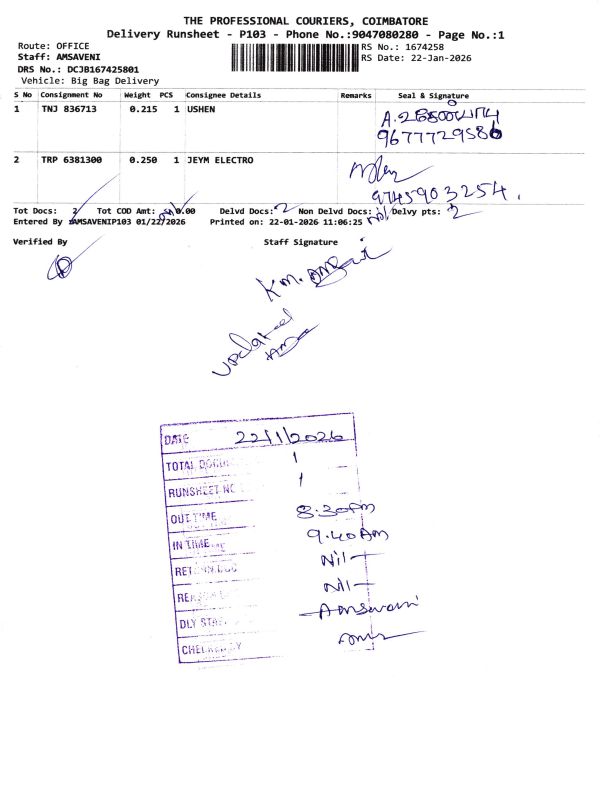 THE PROFESSIONAL COURIERS, COIMBATORE
Delivery Runsheet - P103 - Phone No.:9047080280 - Page No.:1
Route: OFFICE
RS No.: 1674258
Staff: AMSAVENI
RS Date: 22-Jan-2026
DRS No.: DCJB167425801
Vehicle: Big Bag Delivery
S No Consignment No Weight PCS Consignee Details Remarks Seal & Signature
1 TNJ 836713 0.215 1 USHEN
9677729586
2 TRP 6381300 0.250 1 JEYM ELECTRO
9745903254.
Tot Docs: 2 Tot COD Amt: 0.00 Delvd Docs: 2 Non Delvd Docs: Nil Delvy pts: 2
Entered By AMSAVENIP103 01/22/2026 Printed on: 22-01-2026 11:06:25
Verified By Staff Signature
updated
DATE 22/1/2026
TOTAL 1
RUNSHEET NO 1
OUT TIME 8.30AM
IN TIME 9.40AM
Nil
Nil
DLY Amsaveni
CHECKED BY